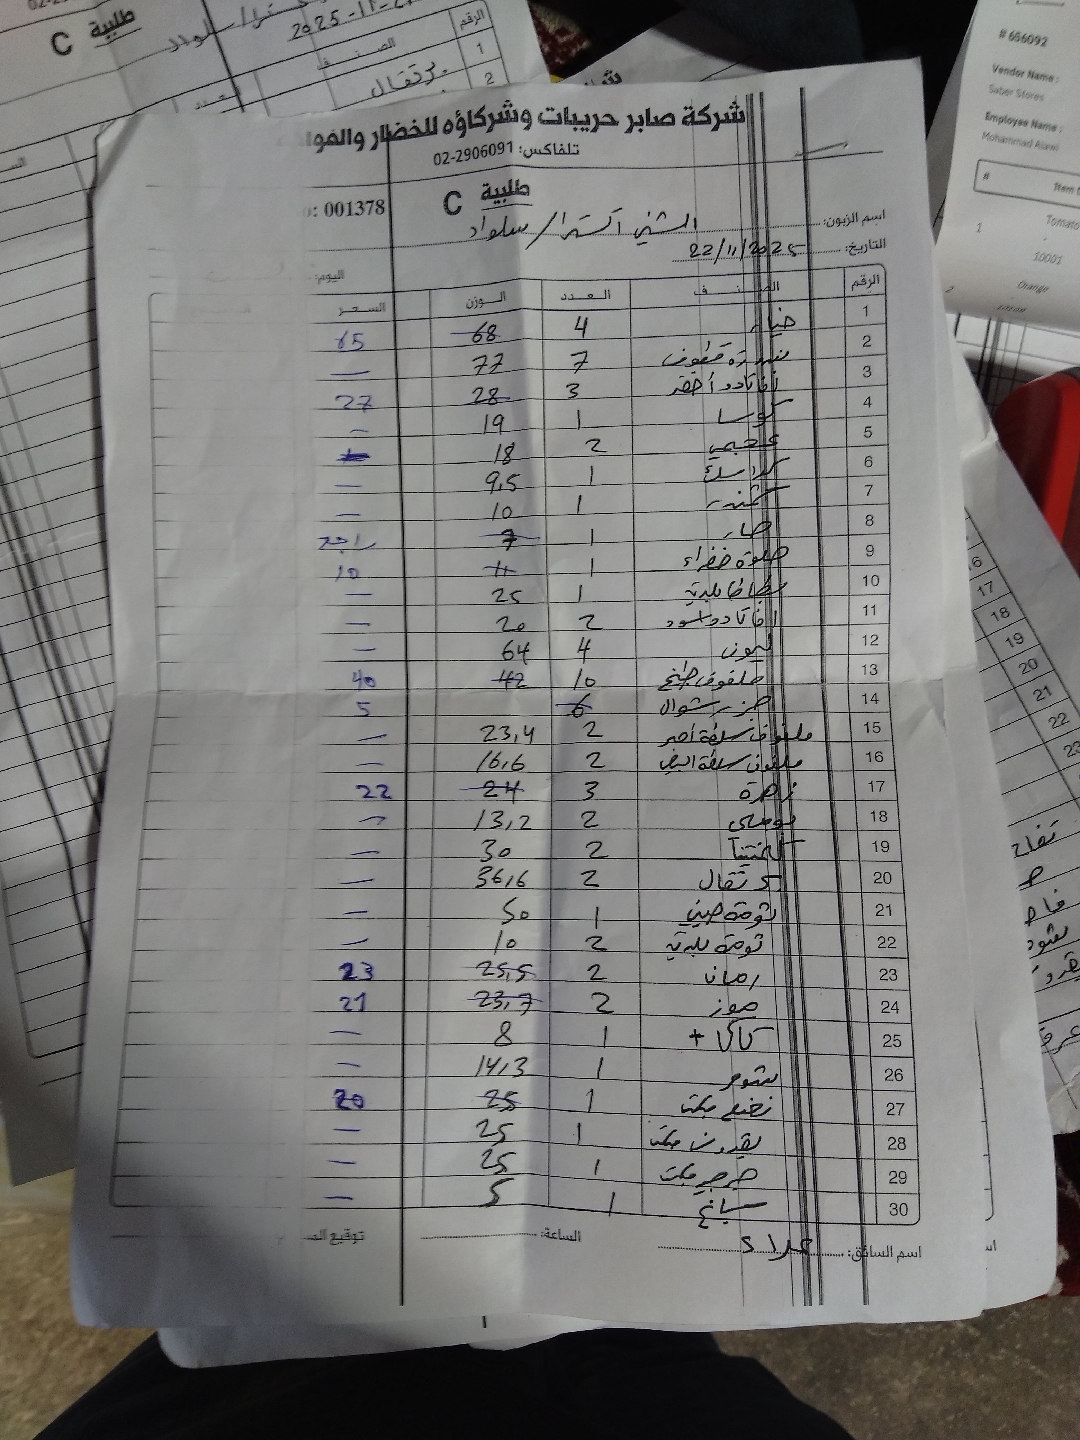 طلبية C
2025-11-2
الرقم
الصنف
العدد
1
برتقال
2
# 656092
Vendor Name :
Saber Stores
Employee Name :
Mohammad Alawi
#
Item
1
Tomato
10001
2
Orange
شركة صابر حريبات وشركاؤه للخضار والفوا
تلفاكس: 02-2906091
طلبية C
o: 001378
اسم الزبون: الشني اكسترا / سلواد
التاريخ: 22/11/2025
اليوم:
الرقم الصنف العدد الوزن السعر
1 خيار 4 68 65
2 بندورة قطوف 7 77 —
3 افاكادو اخضر 3 28 27
4 كوسا 1 19 —
5 عجمي 2 18 —
6 1 9,5 —
7 شمندر 1 10 —
8 حار 1 7 راجع
9 حلوة خضراء 1 11 10
10 بطاطا بلدية 1 25 —
11 افاكادو اسود 2 20 —
12 ليمون 4 64 —
13 ملفوف طبخ 10 42 40
14 جزر شوال 6 5
15 ملفوف سلطة احمر 2 23,4 —
16 ملفوف سلطة ابيض 2 16,6 —
17 زهرة 3 24 22
18 بوملي 2 13,2 —
19 كلمنتينا 2 30 —
20 برتقال 2 36,6 —
21 ثومة صيني 1 50 —
22 ثومة بلدية 2 10 —
23 رمان 2 25,5 23
24 موز 2 23,7 21
25 كاكا + 1 8 —
26 شومر 1 14,3 —
27 نعنع مكت 1 25 20
28 بقدونس مكت 1 25 —
29 جرجير مكت 1 25 —
30 سبانخ 1 5 —
اسم السائق: علاء
الساعة:
توقيع
16
17
18
19
20
21
22
23
تفاح